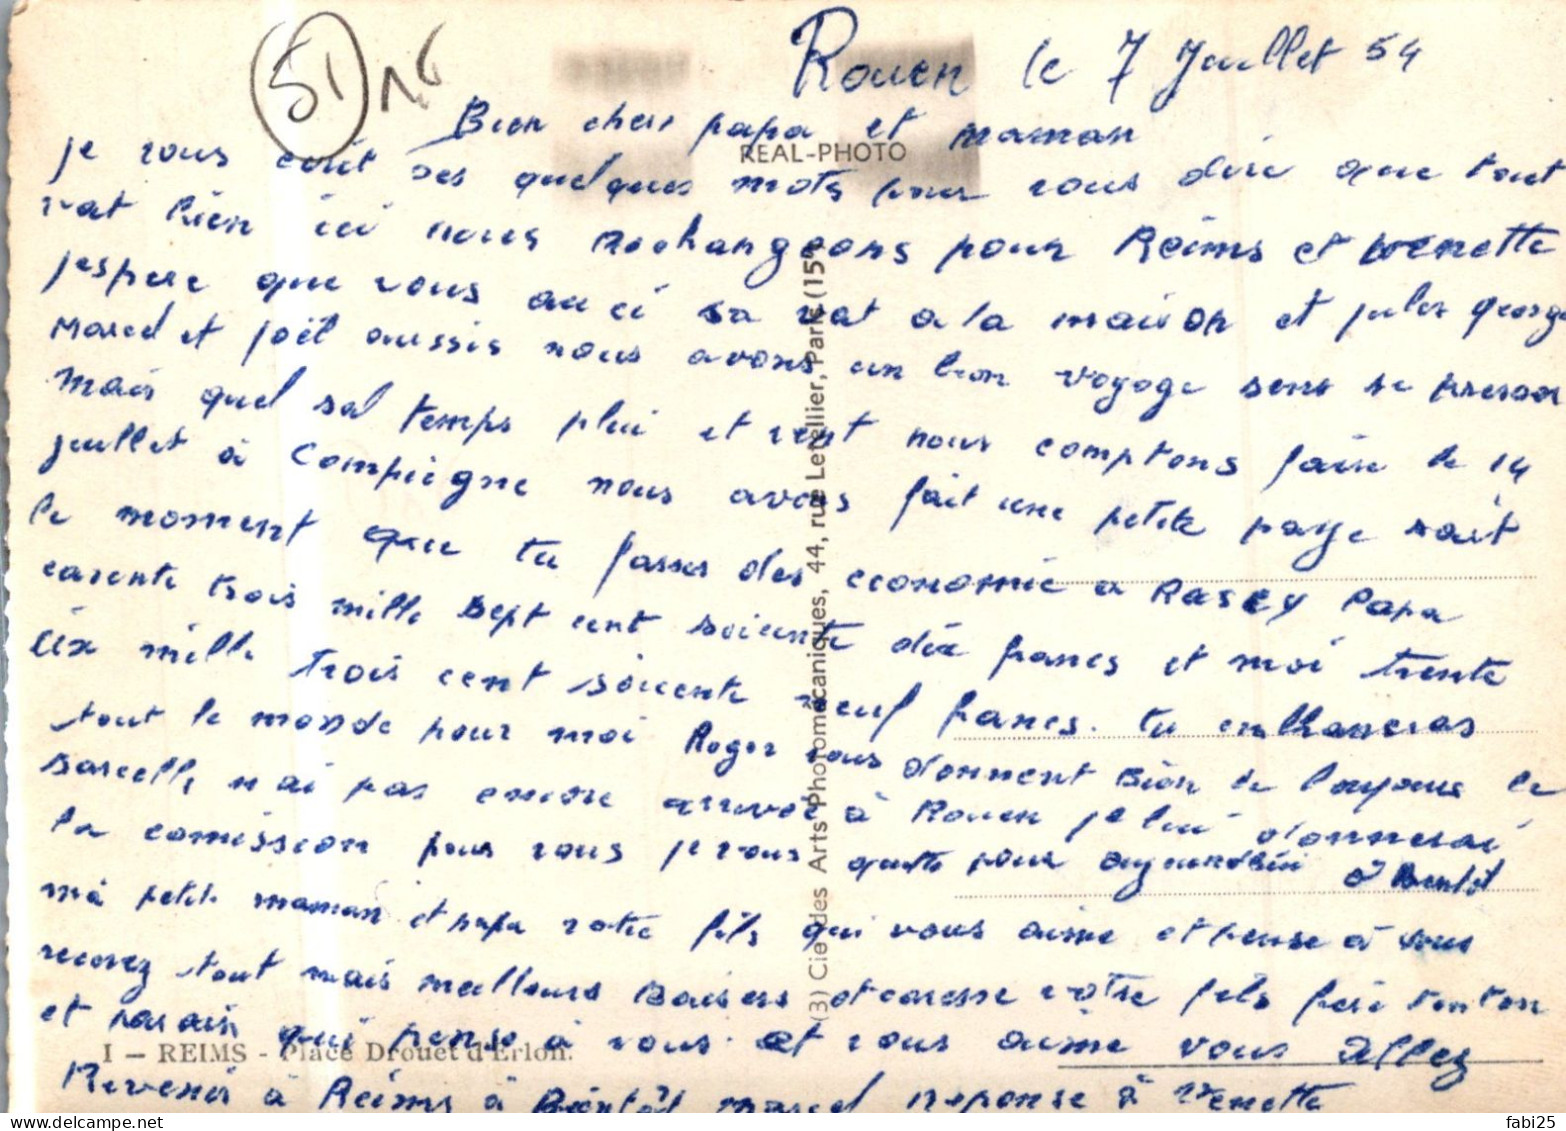 51 16
Rouen le 7 Juillet 54
Bien chers papa et maman
REAL-PHOTO
je vous écrit ses quelques mots pour vous dire que tout
vat bien ici nous rechangeons pour Reims et venette
jespere que vous au ci sa vat a la maison et jules george
Marcel et joël aussis nous avons un bon voyage sens se presser
mais quel sal temps plui et vent nous comptons faire le 14
juillet à Compiegne nous avons fait une petite paye sait
le moment que tu fasses des economie a Rasey Papa
carente trois mille sept cent soicente dix francs et moi trente
six mille trois cent soicente neuf francs. tu enbrasseras
tout le monde pour moi Roger vous donnent Bien le bonjours le
sarcelle n ai pas encore arrivor à Rouen je lui donnerai
la comission pour vous je vous quitte pour aujourdhui à Bientot
ma petite maman et papa votre fils qui vous aime et pense à vous
recevez tout mais meilleurs Baisers et caresse votre fils frere tonton
et parain qui pense à vous et vous aime vous Allez
Revenir à Reims à Bientôt marcel reponse à Venette
I - REIMS - Place Drouet d'Erlon.
(3) Cie des Arts Photomécaniques, 44, rue Letellier, Paris (15e)
fabi25